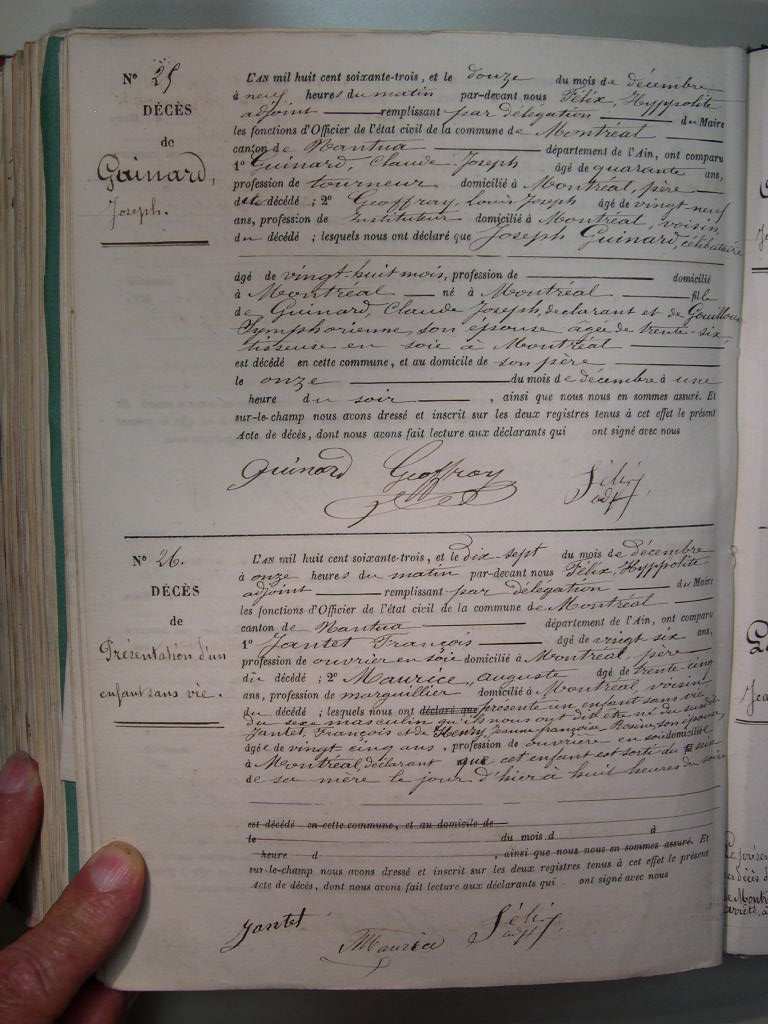 N° 25
DÉCÈS
de
Guinard,
Joseph.
L'AN mil huit cent soixante-trois, et le douze du mois de décembre
à neuf heures du matin par-devant nous Félix, Hyppolite
adjoint remplissant par délégation du Maire
les fonctions d'Officier de l'état civil de la commune de Montréal
canton de Nantua département de l'Ain, ont comparu
1° Guinard, Claude Joseph âgé de quarante ans,
profession de tourneur domicilié à Montréal, père
du décédé ; 2° Geoffray, Louis Joseph âgé de vingt-neuf
ans, profession de Instituteur domicilié à Montréal, voisin,
du décédé ; lesquels nous ont déclaré que Joseph Guinard, célibataire
âgé de vingt-huit mois, profession de domicilié
à Montréal né à Montréal fils
de Guinard, Claude Joseph, déclarant et de Gouilloux
Symphorienne, son épouse agée de trente-six,
tisseuse en soie à Montréal
est décédé en cette commune, et au domicile de son père
le onze du mois de décembre à une
heure du soir , ainsi que nous nous en sommes assuré. Et
sur-le-champ nous avons dressé et inscrit sur les deux registres tenus à cet effet le présent
Acte de décès, dont nous avons fait lecture aux déclarants qui ont signé avec nous
Guinard Geoffray Félix
adjt
N° 26.
DÉCÈS
de
Présentation d'un
enfant sans vie.
L'AN mil huit cent soixante-trois, et le dix-sept du mois de décembre
à onze heures du matin par-devant nous Félix, Hyppolite
adjoint remplissant par délégation du Maire
les fonctions d'Officier de l'état civil de la commune de Montréal
canton de Nantua département de l'Ain, ont comparu
1° Jantet François âgé de vingt six ans,
profession de ouvrier en soie domicilié à Montréal, père
du décédé ; 2° Maurice, auguste âgé de trente-cinq
ans, profession de marguillier domicilié à Montréal voisin
du décédé ; lesquels nous ont déclaré que présenté un enfant sans vie
du sexe masculin qu'ils nous ont dit être né du susdit
Jantet, François et de Henry, jeanne françoise Rosine, son épouse,
âgée de vingt cinq ans, profession de ouvrière en soie domicilié
à Montréal, déclarant que cet enfant est sorti du sein
de sa mère le jour d'hier à huit heures du soir
est décédé en cette commune, et au domicile de
le du mois d à
heure d , ainsi que nous nous en sommes assuré. Et
sur-le-champ nous avons dressé et inscrit sur les deux registres tenus à cet effet le présent
Acte de décès, dont nous avons fait lecture aux déclarants qui ont signé avec nous
Jantet Maurice Félix
adjt